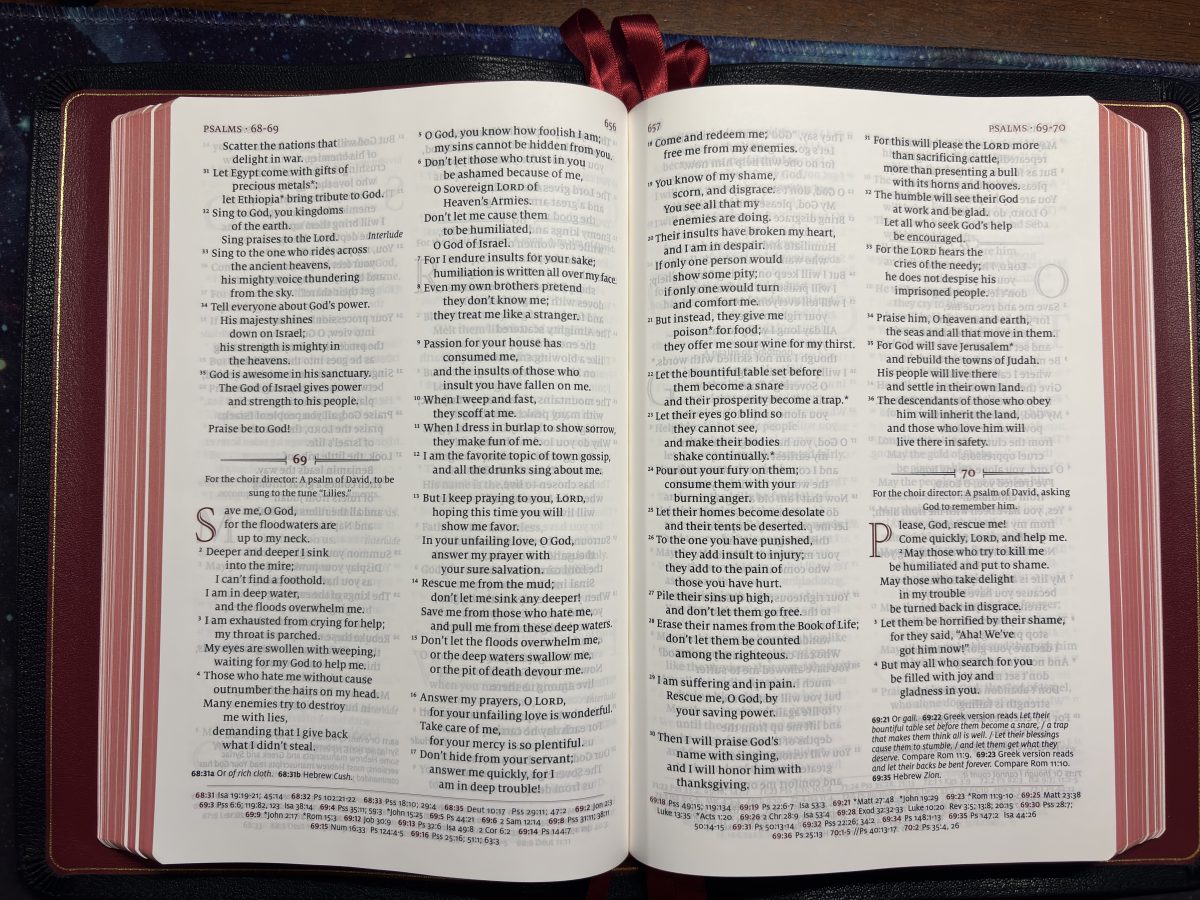 PSALMS · 68-69
656
Scatter the nations that
delight in war.
31 Let Egypt come with gifts of
precious metals*;
let Ethiopia* bring tribute to God.
32 Sing to God, you kingdoms
of the earth.
Sing praises to the Lord. Interlude
33 Sing to the one who rides across
the ancient heavens,
his mighty voice thundering
from the sky.
34 Tell everyone about God's power.
His majesty shines
down on Israel;
his strength is mighty in
the heavens.
35 God is awesome in his sanctuary.
The God of Israel gives power
and strength to his people.
Praise be to God!
69
For the choir director: A psalm of David, to be
sung to the tune "Lilies."
Save me, O God,
for the floodwaters are
up to my neck.
2 Deeper and deeper I sink
into the mire;
I can't find a foothold.
I am in deep water,
and the floods overwhelm me.
3 I am exhausted from crying for help;
my throat is parched.
My eyes are swollen with weeping,
waiting for my God to help me.
4 Those who hate me without cause
outnumber the hairs on my head.
Many enemies try to destroy
me with lies,
demanding that I give back
what I didn't steal.
68:31a Or of rich cloth. 68:31b Hebrew Cush.
5 O God, you know how foolish I am;
my sins cannot be hidden from you.
6 Don't let those who trust in you
be ashamed because of me,
O Sovereign LORD of
Heaven's Armies.
Don't let me cause them
to be humiliated,
O God of Israel.
7 For I endure insults for your sake;
humiliation is written all over my face.
8 Even my own brothers pretend
they don't know me;
they treat me like a stranger.
9 Passion for your house has
consumed me,
and the insults of those who
insult you have fallen on me.
10 When I weep and fast,
they scoff at me.
11 When I dress in burlap to show sorrow,
they make fun of me.
12 I am the favorite topic of town gossip,
and all the drunks sing about me.
13 But I keep praying to you, LORD,
hoping this time you will
show me favor.
In your unfailing love, O God,
answer my prayer with
your sure salvation.
14 Rescue me from the mud;
don't let me sink any deeper!
Save me from those who hate me,
and pull me from these deep waters.
15 Don't let the floods overwhelm me,
or the deep waters swallow me,
or the pit of death devour me.
16 Answer my prayers, O LORD,
for your unfailing love is wonderful.
Take care of me,
for your mercy is so plentiful.
17 Don't hide from your servant;
answer me quickly, for I
am in deep trouble!
68:31 Isa 19:19-21; 45:14 68:32 Ps 102:21-22 68:33 Pss 18:10; 29:4 68:35 Deut 10:17 Pss 29:11; 47:2 69:2 Jon 2:3
69:3 Pss 6:6; 119:82, 123 Isa 38:14 69:4 Pss 35:11; 59:3 *John 15:25 69:5 Ps 44:21 69:6 2 Sam 12:14 69:8 Pss 31:11; 38:11
69:9 *John 2:17 *Rom 15:3 69:12 Job 30:9 69:13 Ps 32:6 Isa 49:8 2 Cor 6:2 69:14 Ps 144:7
69:15 Num 16:33 Ps 124:4-5 69:16 Pss 25:16; 51:1; 63:3
657
PSALMS · 69-70
18 Come and redeem me;
free me from my enemies.
19 You know of my shame,
scorn, and disgrace.
You see all that my
enemies are doing.
20 Their insults have broken my heart,
and I am in despair.
If only one person would
show some pity;
if only one would turn
and comfort me.
21 But instead, they give me
poison* for food;
they offer me sour wine for my thirst.
22 Let the bountiful table set before
them become a snare
and their prosperity become a trap.*
23 Let their eyes go blind so
they cannot see,
and make their bodies
shake continually.*
24 Pour out your fury on them;
consume them with your
burning anger.
25 Let their homes become desolate
and their tents be deserted.
26 To the one you have punished,
they add insult to injury;
they add to the pain of
those you have hurt.
27 Pile their sins up high,
and don't let them go free.
28 Erase their names from the Book of Life;
don't let them be counted
among the righteous.
29 I am suffering and in pain.
Rescue me, O God, by
your saving power.
30 Then I will praise God's
name with singing,
and I will honor him with
thanksgiving.
31 For this will please the LORD more
than sacrificing cattle,
more than presenting a bull
with its horns and hooves.
32 The humble will see their God
at work and be glad.
Let all who seek God's help
be encouraged.
33 For the LORD hears the
cries of the needy;
he does not despise his
imprisoned people.
34 Praise him, O heaven and earth,
the seas and all that move in them.
35 For God will save Jerusalem*
and rebuild the towns of Judah.
His people will live there
and settle in their own land.
36 The descendants of those who obey
him will inherit the land,
and those who love him will
live there in safety.
70
For the choir director: A psalm of David, asking
God to remember him.
Please, God, rescue me!
Come quickly, LORD, and help me.
2 May those who try to kill me
be humiliated and put to shame.
May those who take delight
in my trouble
be turned back in disgrace.
3 Let them be horrified by their shame,
for they said, "Aha! We've
got him now!"
4 But may all who search for you
be filled with joy and
gladness in you.
69:21 Or gall. 69:22 Greek version reads Let their
bountiful table set before them become a snare, / a trap
that makes them think all is well. / Let their blessings
cause them to stumble, / and let them get what they
deserve. Compare Rom 11:9. 69:23 Greek version reads
and let their backs be bent forever. Compare Rom 11:10.
69:35 Hebrew Zion.
69:18 Pss 49:15; 119:134 69:19 Ps 22:6-7 Isa 53:3 69:21 *Matt 27:48 *John 19:29 69:23 *Rom 11:9-10 69:25 Matt 23:38
Luke 13:35 *Acts 1:20 69:26 2 Chr 28:9 Isa 53:4 69:28 Exod 32:32-33 Luke 10:20 Rev 3:5; 13:8; 20:15 69:30 Pss 28:7;
50:14-15 69:31 Ps 50:13-14 69:32 Pss 22:26; 34:2 69:34 Ps 148:1-13 69:35 Ps 147:2 Isa 44:26
69:36 Ps 25:13 70:1-5 //Ps 40:13-17 70:2 Ps 35:4, 26